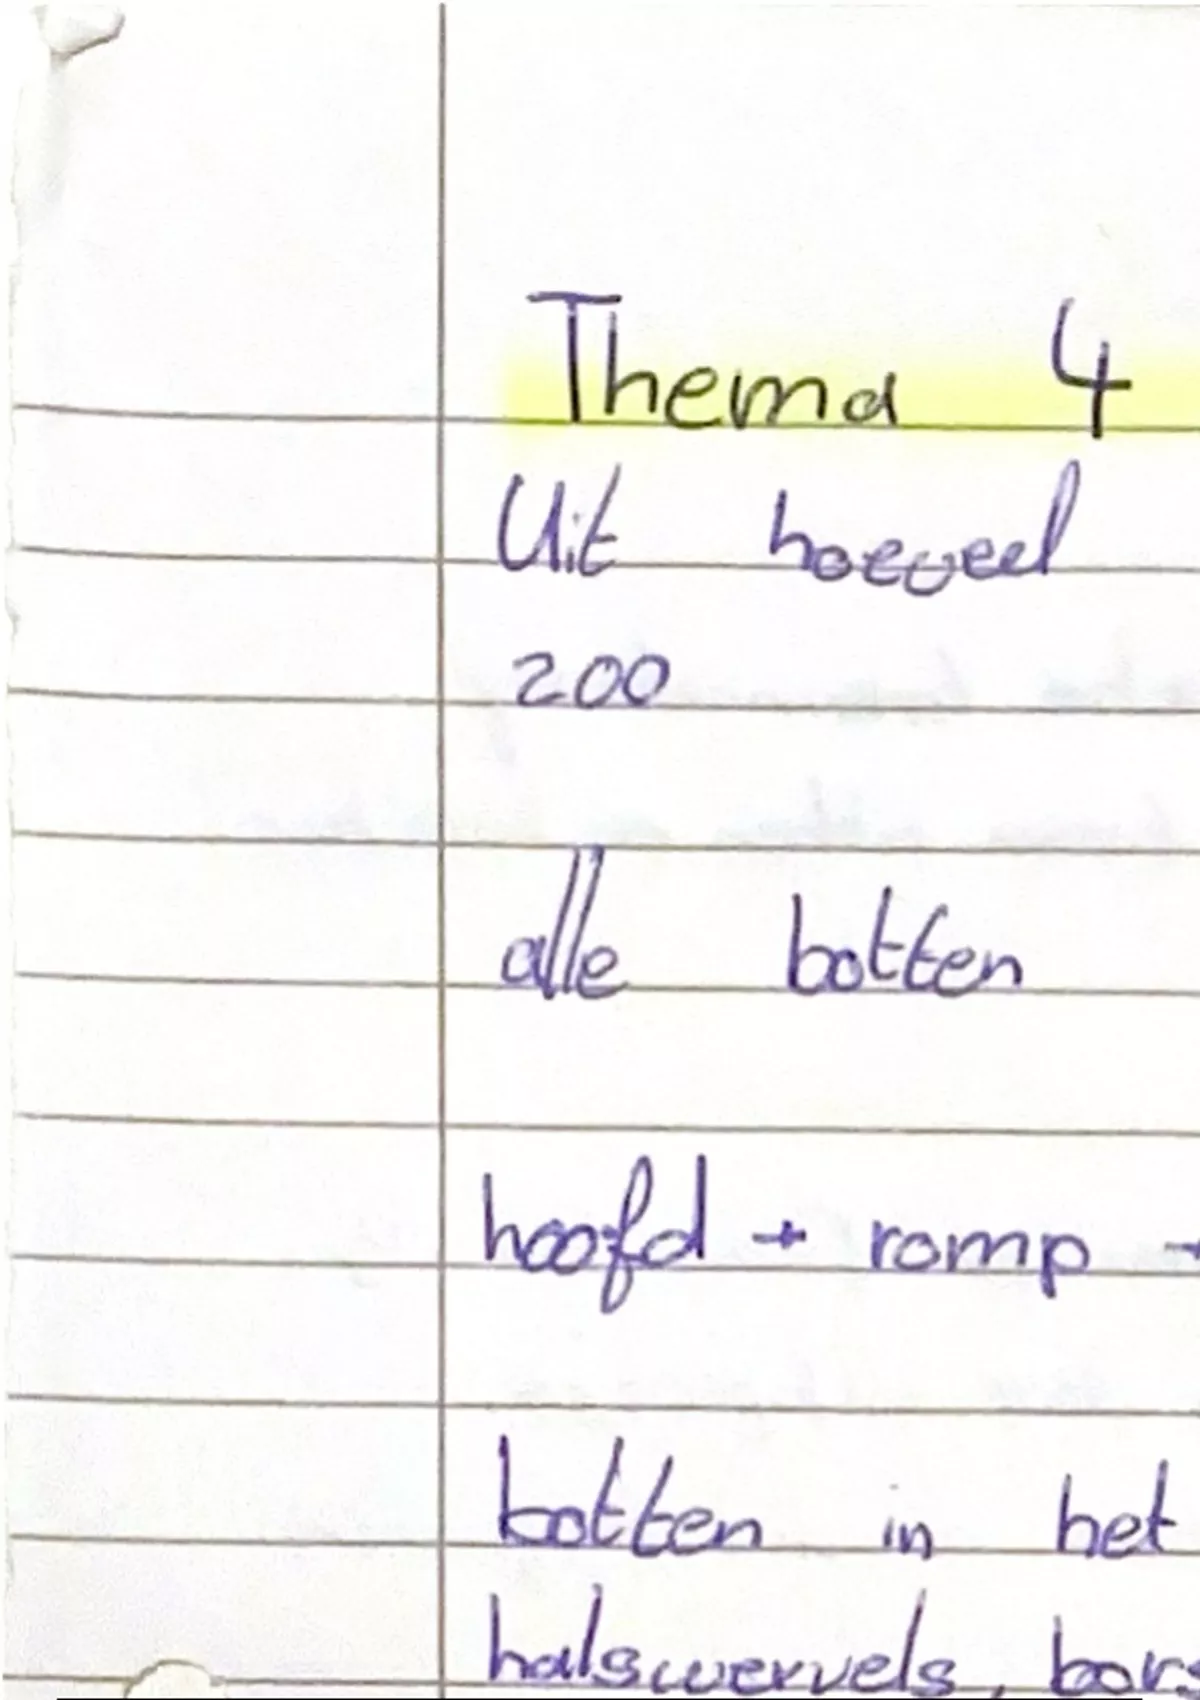 Thema 4
Uit hoeveel
200
alle botten
hoofd + romp +
botten in het
halswervels, bors